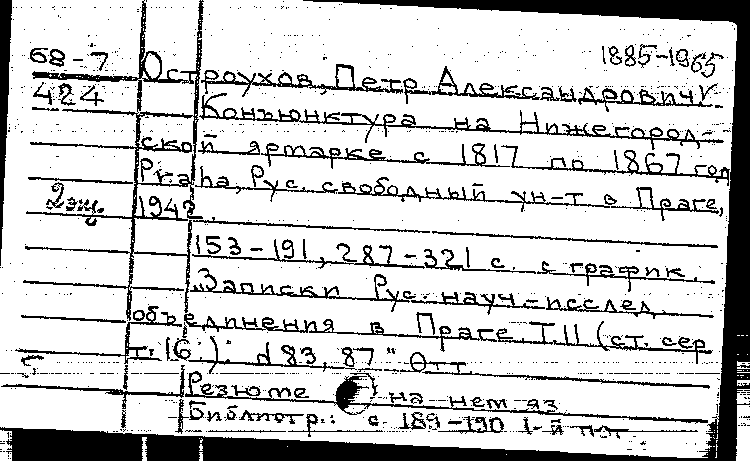 1885-1965
68-7
424
Остроухов, Петр Александрович.
Конъюнктура на Нижегород-
ской ярмарке с 1817 по 1867 год
Praha, Рус. свободный ун-т в Праге,
2 экз.
1942.
153-191, 287-321 с. с график.
„Записки Рус. науч.-исслед.
объединения в Праге. Т.11 (ст. сер
т. 16): d 83, 87" Отт.
Резюме на нем. яз
Библиогр.: с 189-190 1-й паг.